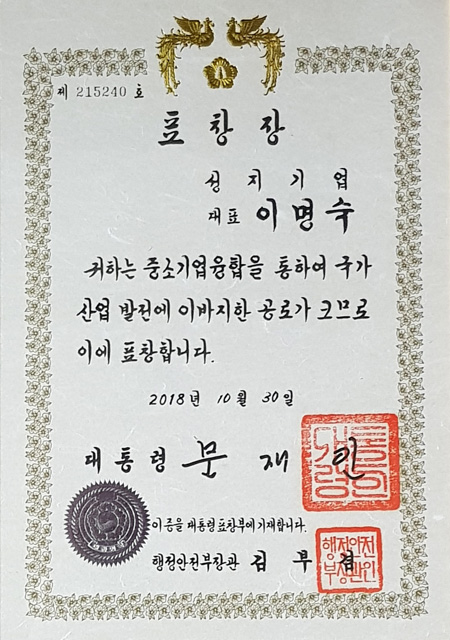 제 215240 호
표 창 장
성 지 기 업
대표 이 명 숙
귀하는 중소기업융합을 통하여 국가
산업 발전에 이바지한 공로가 크므로
이에 표창합니다.
2018년 10월 30일
대통령 문 재 인
이 증을 대통령표창부에 기재합니다.
행정안전부장관 김 부 겸
행정안전
부장관인